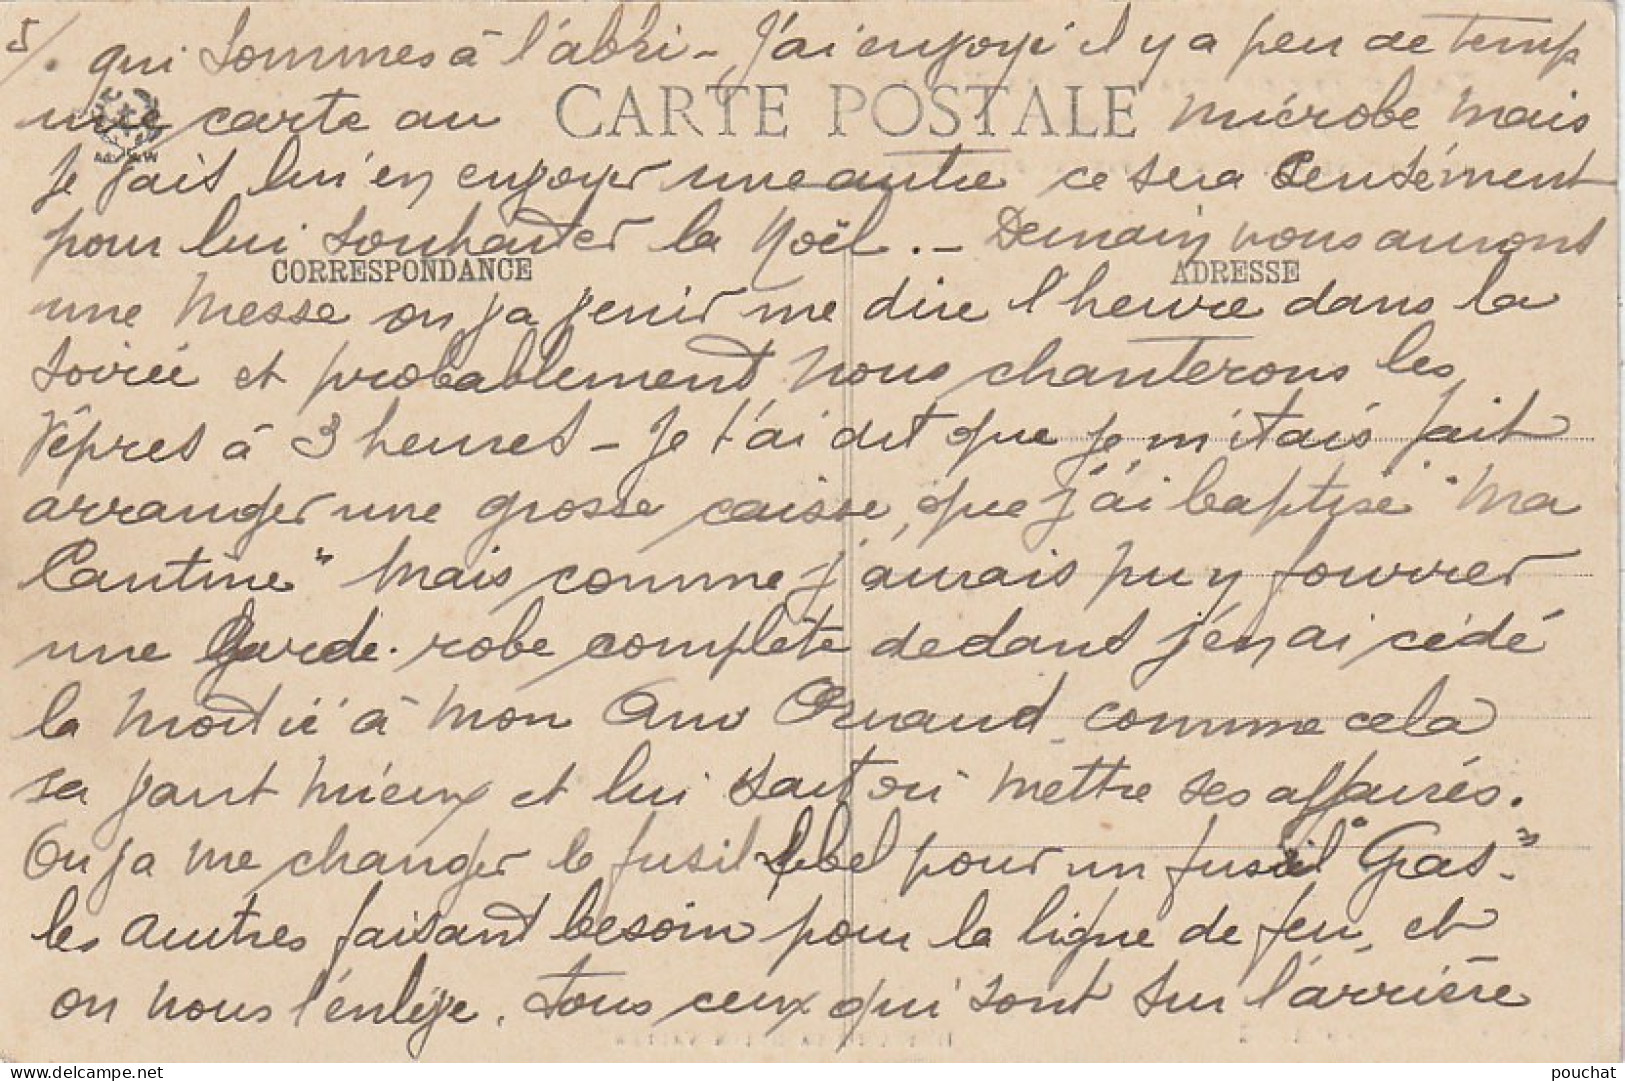 5/. qui sommes à l'abri - J'ai envoyé il y a peu de temp
une carte au CARTE POSTALE microbe mais
je vais lui en envoyer une autre ce sera
pour lui souhaiter la Noël. - Demain nous aurons
CORRESPONDANCE ADRESSE
une messe on va venir me dire l'heure dans la
soirée et probablement nous chanterons les
Vêpres à 3 heures - Je t'ai dit que je m'étais fait
arranger une grosse caisse, que j'ai baptisé "Ma
Cantine" mais comme j'aurais pu y fourrer
une Garde-robe complète dedans j'en ai cédé
la moitié à mon Ami comme cela
sa vaut mieux et lui sait où mettre ses affaires.
On va me changer le fusil lebel pour un fusil "Gras"
les autres faisant besoin pour la ligne de feu, et
on nous l'enlève. tous ceux qui sont sur l'arrière
pouchat